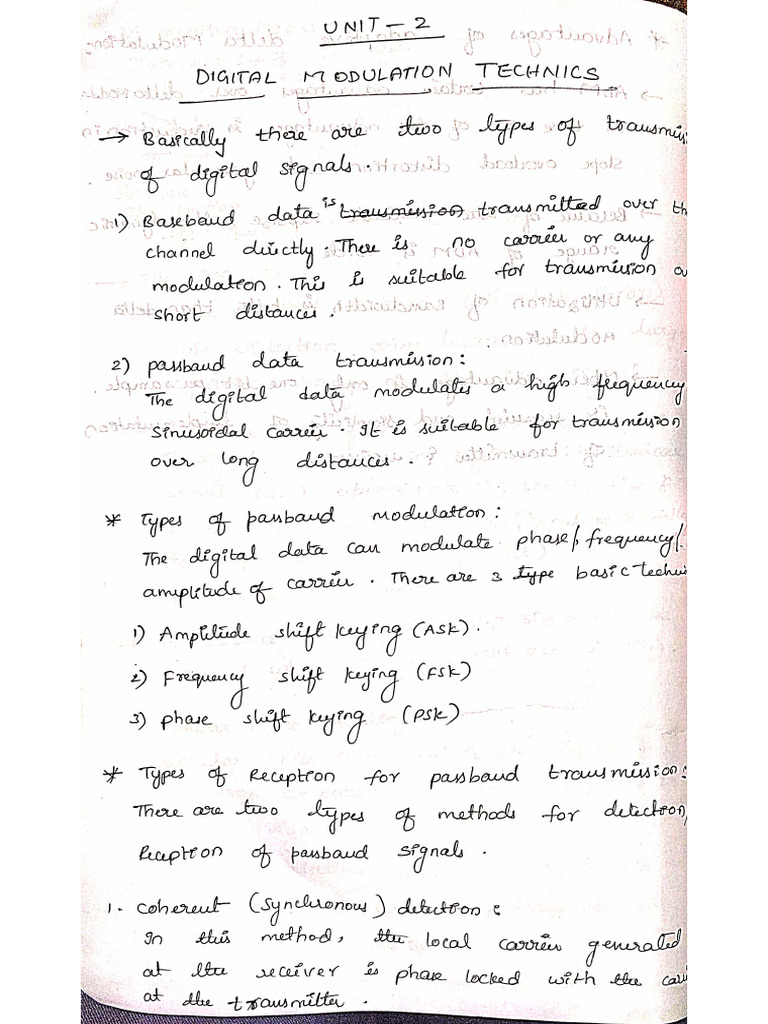 UNIT - 2
DIGITAL MODULATION TECHNICS
→ Basically there are two types of transmis
of digital signals.
1) Baseband data is transmission transmitted over th
channel directly. There is no carrier or any
modulation. This is suitable for transmission ov
short distances.
2) passband data transmission:
The digital data modulates a high frequency
sinusoidal carrier. It is suitable for transmission
over long distances.
* Types of passband modulation:
The digital data can modulate phase/frequency/
amplitude of carrier. There are 3 type basic techni
1) Amplitude shift keying (ASK).
2) Frequency shift keying (FSK)
3) phase shift keying (PSK)
* Types of Reception for passband transmission:
There are two types of methods for detection/
Reception of passband signals.
1. Coherent (Synchronous) detection:
In this method, the local carrier generated
at the receiver is phase locked with the carri
at the transmitter.